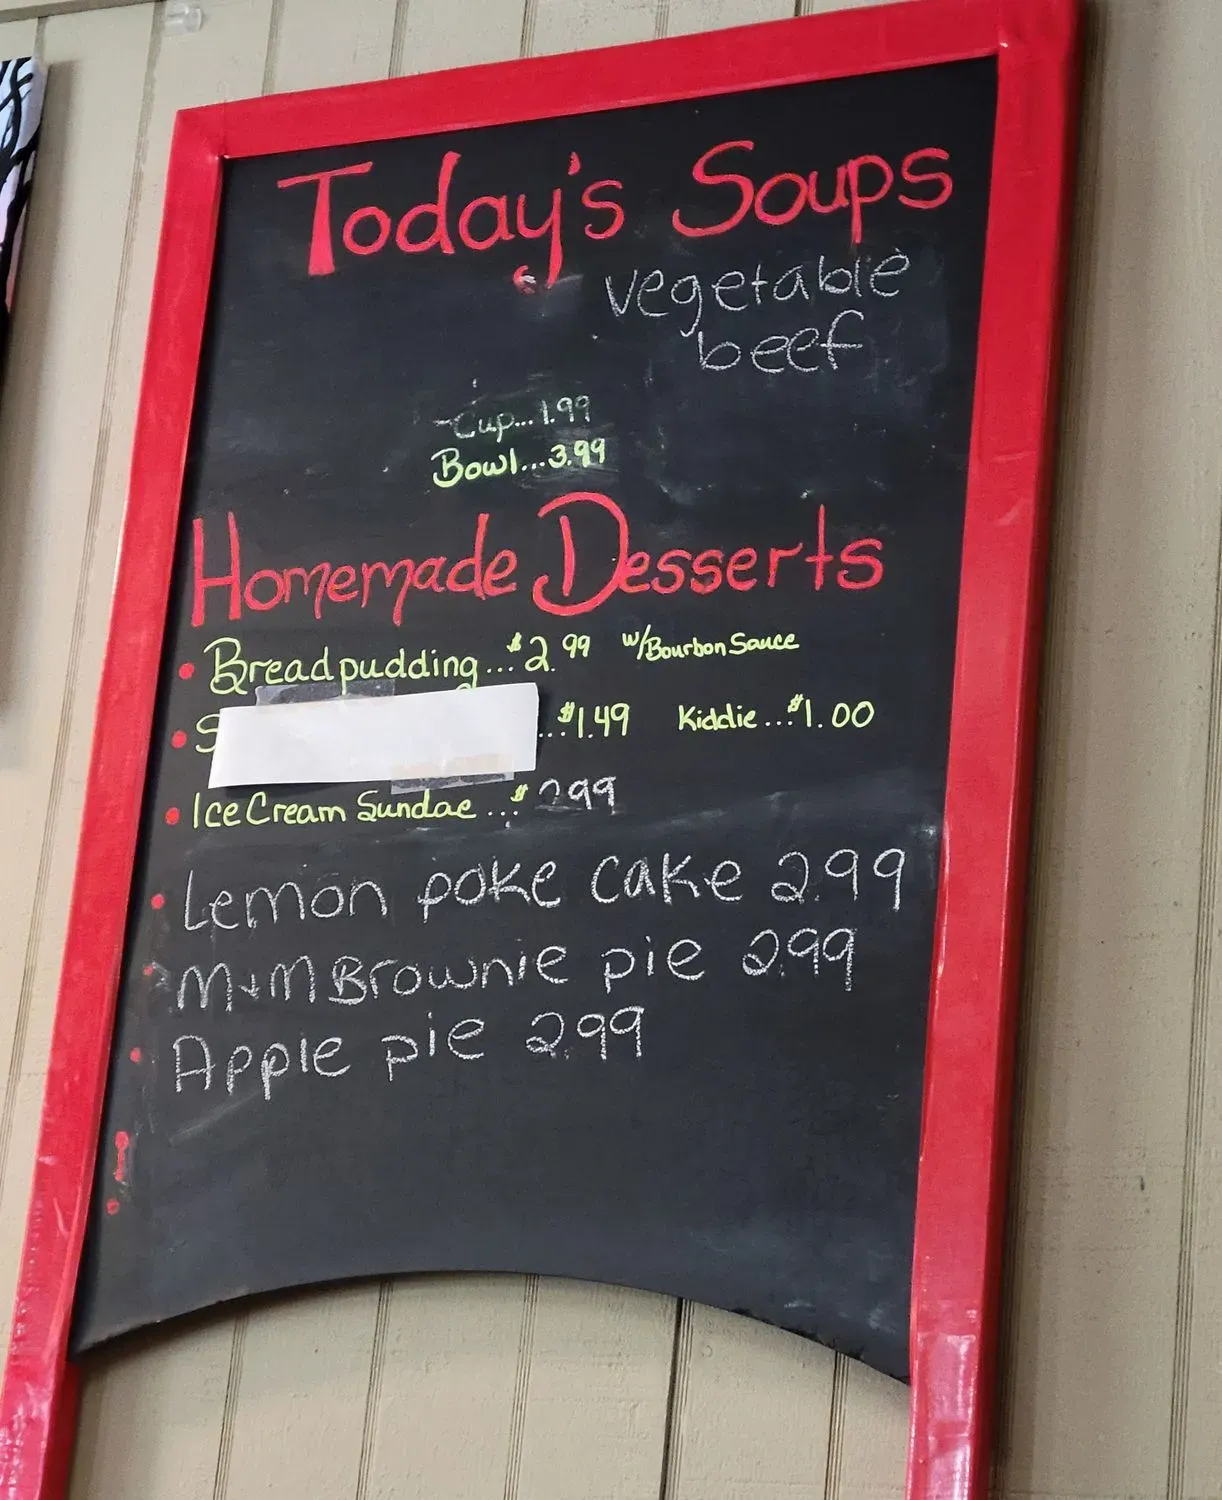 Today's Soups
vegetable
beef
Cup... 1.99
Bowl...3.99
Homemade Desserts
• Bread pudding...$2.99 w/Bourbon Sauce
• S ...$1.49 Kiddie...$1.00
• Ice Cream Sundae...$2.99
• Lemon poke cake 2.99
• M+M Brownie pie 2.99
• Apple pie 2.99